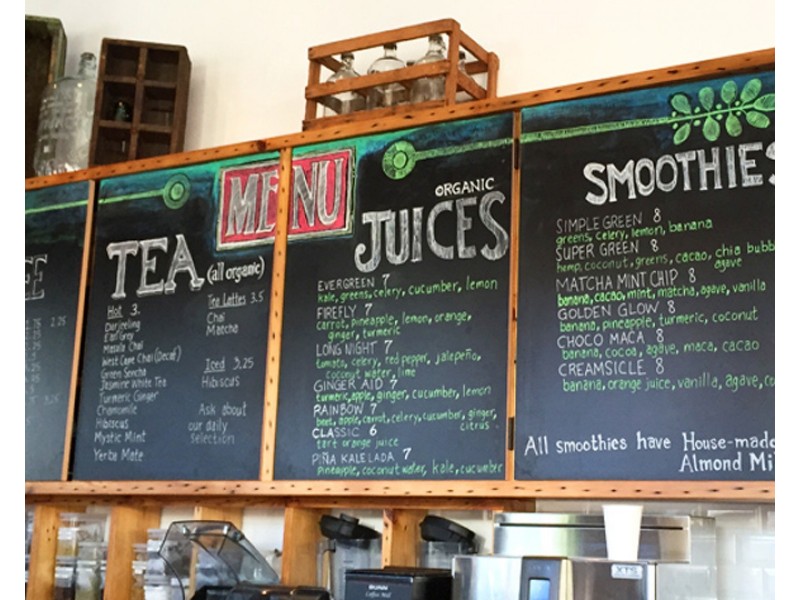 MENU
TEA (all organic)
Hot 3.
Darjeeling
Earl Grey
Masala Chai
West Cape Chai (Decaf)
Green Sencha
Jasmine White Tea
Turmeric Ginger
Chamomile
Hibiscus
Mystic Mint
Yerba Mate
Tea Lattes 3.5
Chai
Matcha
Iced 3.25
Hibiscus
Ask about
our daily
selection
ORGANIC
JUICES
EVERGREEN 7
kale, greens, celery, cucumber, lemon
FIREFLY 7
carrot, pineapple, lemon, orange,
ginger, turmeric
LONG NIGHT 7
tomato, celery, red pepper, jalapeño,
coconut water, lime
GINGER AID 7
turmeric, apple, ginger, cucumber, lemon
RAINBOW 7
beet, apple, carrot, celery, cucumber, ginger,
citrus
CLASSIC 6
tart orange juice
PIÑA KALELADA 7
pineapple, coconut water, kale, cucumber
SMOOTHIES
SIMPLE GREEN 8
greens, celery, lemon, banana
SUPER GREEN 8
hemp, coconut, greens, cacao, chia bubb
agave
MATCHA MINT CHIP 8
banana, cacao, mint, matcha, agave, vanilla
GOLDEN GLOW 8
banana, pineapple, turmeric, coconut
CHOCO MACA 8
banana, cocoa, agave, maca, cacao
CREAMSICLE 8
banana, orange juice, vanilla, agave, co
All smoothies have House-made
Almond Mi
2.25
BUNN
XTS